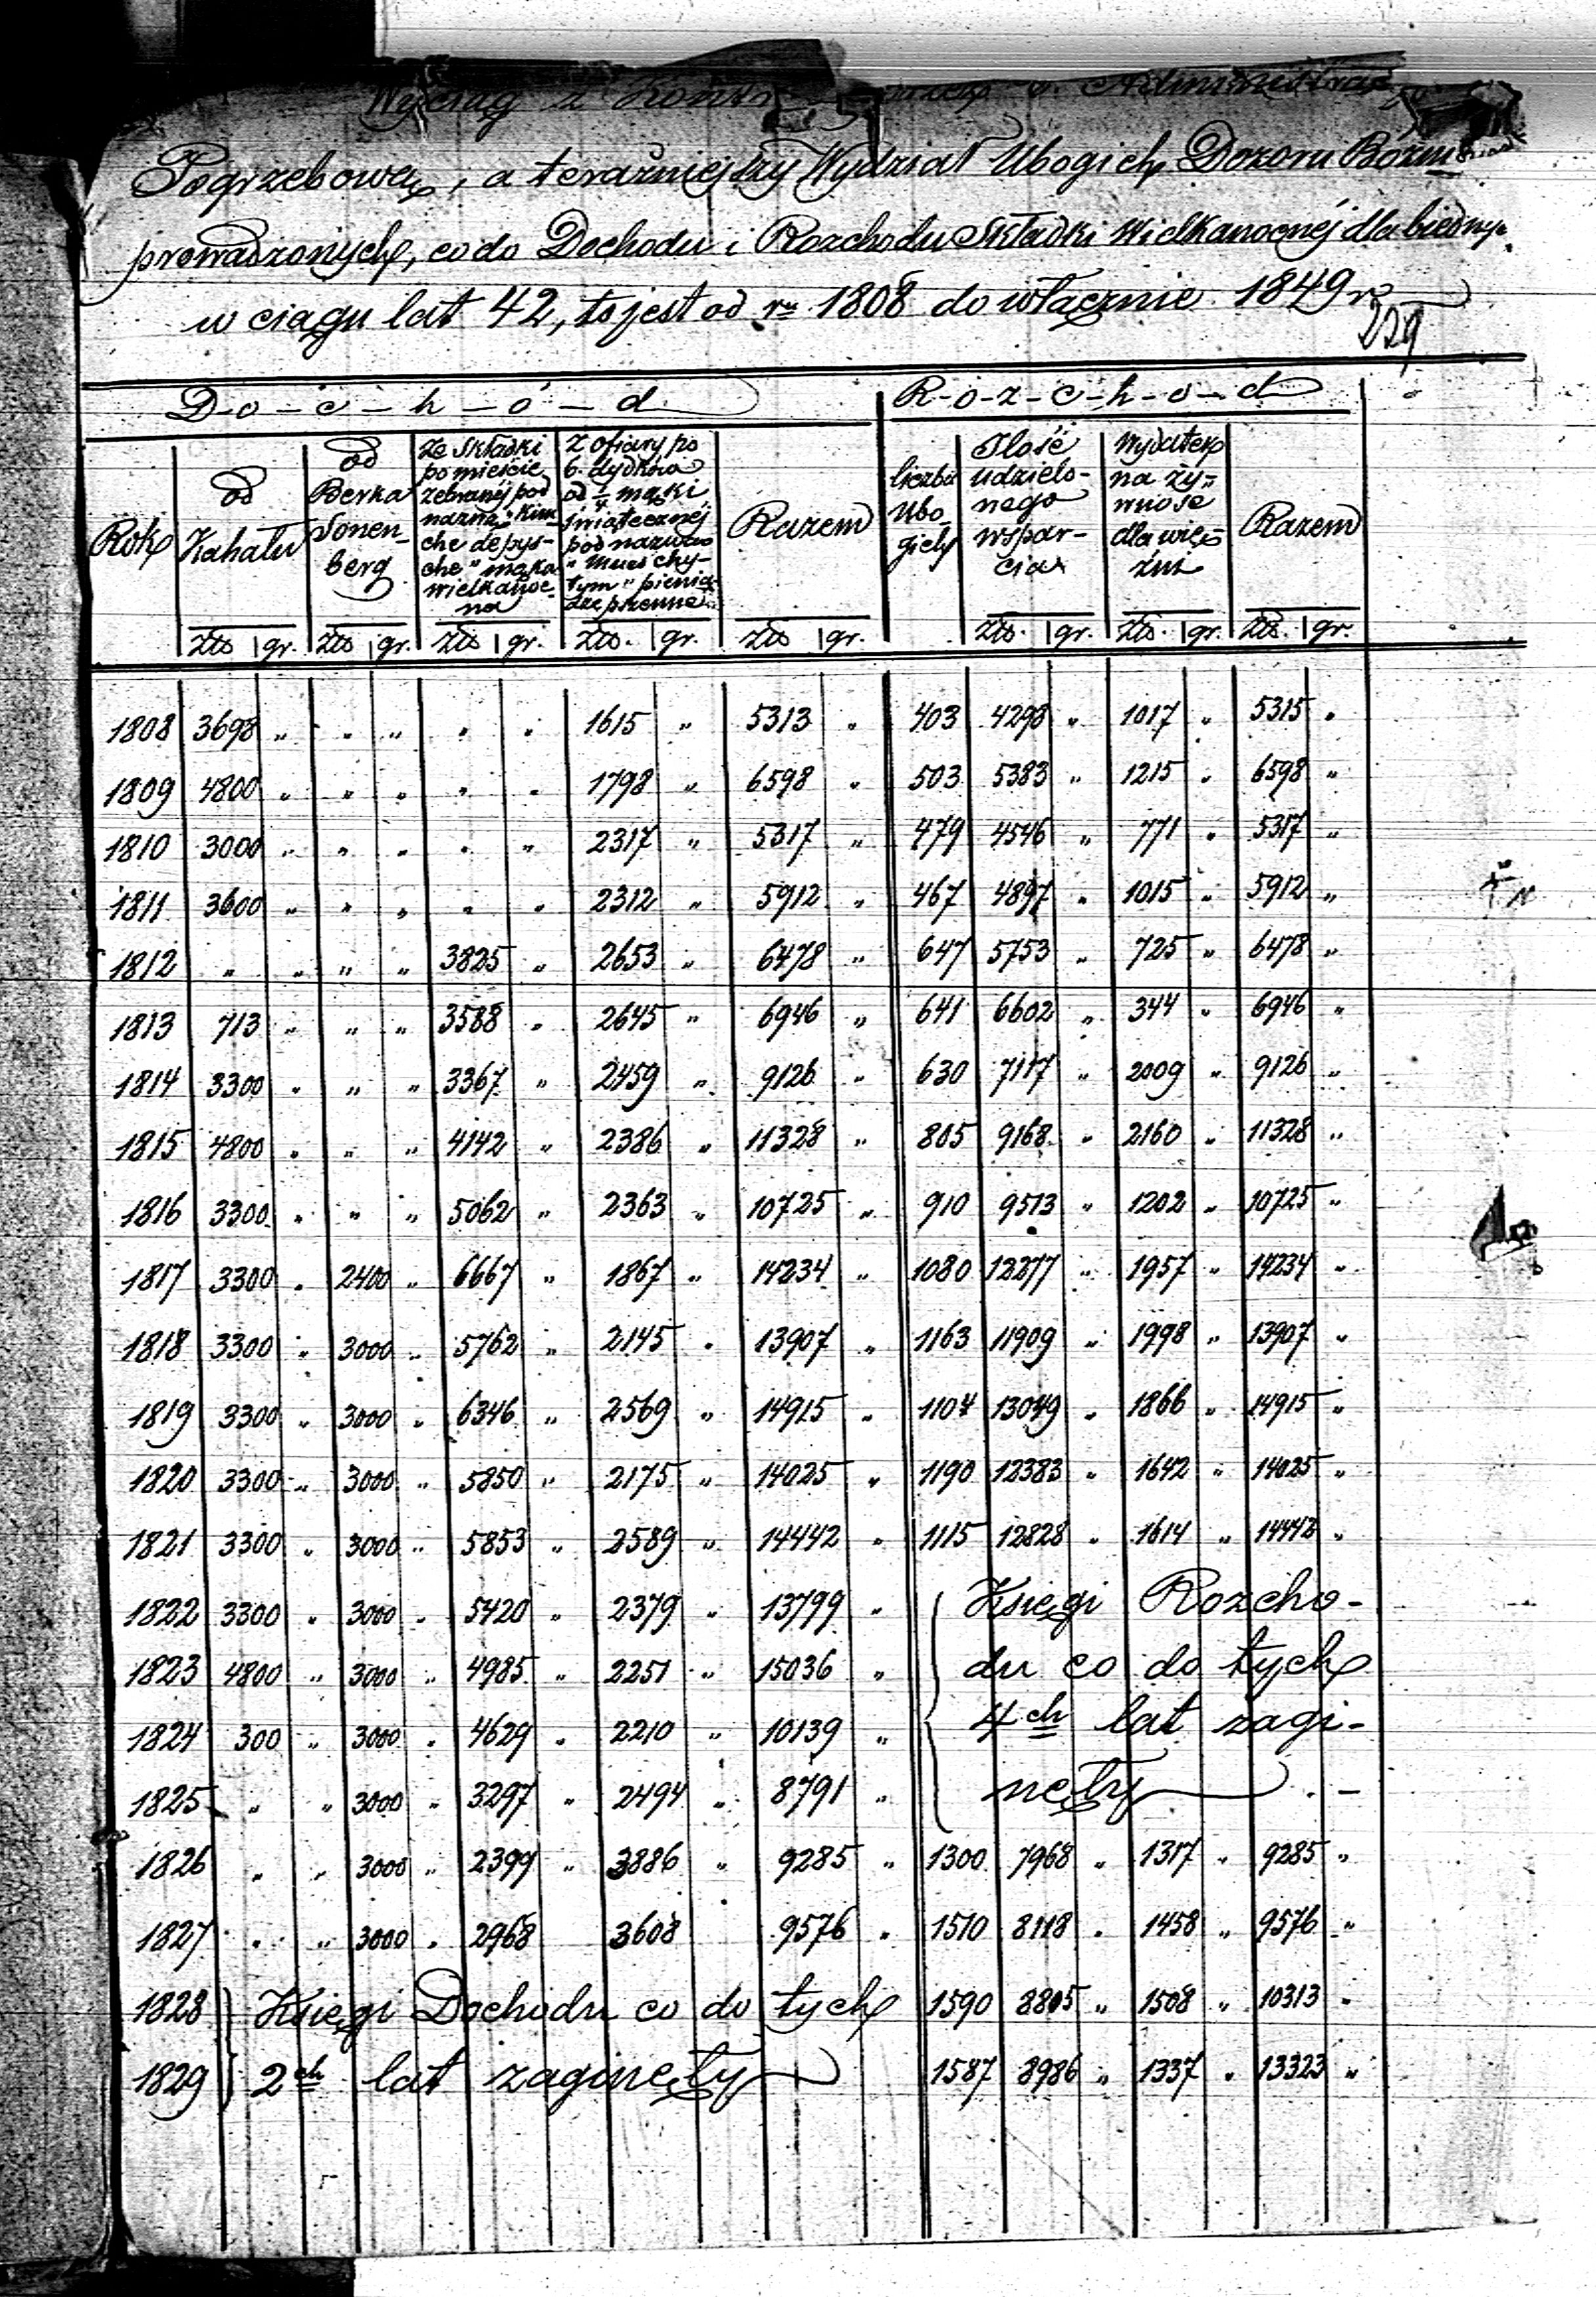 Wyciąg z Administracją
Pogrzebową, a teraźniejszy Wydział Ubogich Dozoru Bożni
prowadzonych, co do Dochodu i Rozchodu Składki Wielkanocnéj dla biednych
w ciągu lat 42, to jest od ru 1808 do włącznie 1849 r.
229
D-o-c-h-ó-d R-o-z-c-h-o-d
Rok | od Kahału | od Berka Sonenberg | ze składki po mieście zebranéj pod nazwą "Kimche depysche" mąka wielkanocna | z ofiary po 6. dydków od 1/4 mąki świątecznéj pod nazwą "Mues chytym" pieniądze pszenne | Razem | liczba Ubogich | Ilość udzielonego wsparcia | Wydatek na żywność dla więźni | Razem
złp gr. | złp gr. | złp gr. | złp. gr. | złp gr. | złp. gr. | złp. gr. | złp. gr.
1808 3698 „ „ „ „ „ 1615 „ 5313 „ 403 4298 „ 1017 „ 5315 „
1809 4800 „ „ „ „ „ 1798 „ 6598 „ 503 5383 „ 1215 „ 6598 „
1810 3000 „ „ „ „ „ 2317 „ 5317 „ 479 4546 „ 771 „ 5317 „
1811 3600 „ „ „ „ „ 2312 „ 5912 „ 467 4897 „ 1015 „ 5912 „
1812 „ „ „ „ 3825 „ 2653 „ 6478 „ 647 5753 „ 725 „ 6478 „
1813 713 „ „ „ 3588 „ 2645 „ 6946 „ 641 6602 „ 344 „ 6946 „
1814 3300 „ „ „ 3367 „ 2459 „ 9126 „ 630 7117 „ 2009 „ 9126 „
1815 4800 „ „ „ 4142 „ 2386 „ 11328 „ 805 9168 „ 2160 „ 11328 „
1816 3300 „ „ „ 5062 „ 2363 „ 10725 „ 910 9513 „ 1202 „ 10725 „
1817 3300 „ 2400 „ 6667 „ 1867 „ 14234 „ 1080 12277 „ 1957 „ 14234 „
1818 3300 „ 3000 „ 5762 „ 2145 „ 13907 „ 1163 11909 „ 1998 „ 13907 „
1819 3300 „ 3000 „ 6346 „ 2569 „ 14915 „ 1104 13049 „ 1866 „ 14915 „
1820 3300 „ 3000 „ 5850 „ 2175 „ 14025 „ 1190 12383 „ 1642 „ 14025 „
1821 3300 „ 3000 „ 5853 „ 2589 „ 14442 „ 1115 12828 „ 1614 „ 14442 „
1822 3300 „ 3000 „ 5420 „ 2379 „ 13799 „ Księgi Rozcho-
1823 4800 „ 3000 „ 4985 „ 2251 „ 15036 „ du co do tych
1824 300 „ 3000 „ 4629 „ 2210 „ 10139 „ 4ch lat zagi-
1825 „ „ 3000 „ 3297 „ 2494 „ 8791 „ nęły . -
1826 „ „ 3000 „ 2399 „ 3886 „ 9285 „ 1300 7968 „ 1317 „ 9285 „
1827 „ „ 3000 „ 2968 3608 9576 „ 1510 8118 „ 1458 „ 9576 „
1828 Księgi Dochodu co do tych 1590 8805 „ 1508 „ 10313 „
1829 2ch lat zaginęły 1587 8986 „ 1337 „ 13323 „